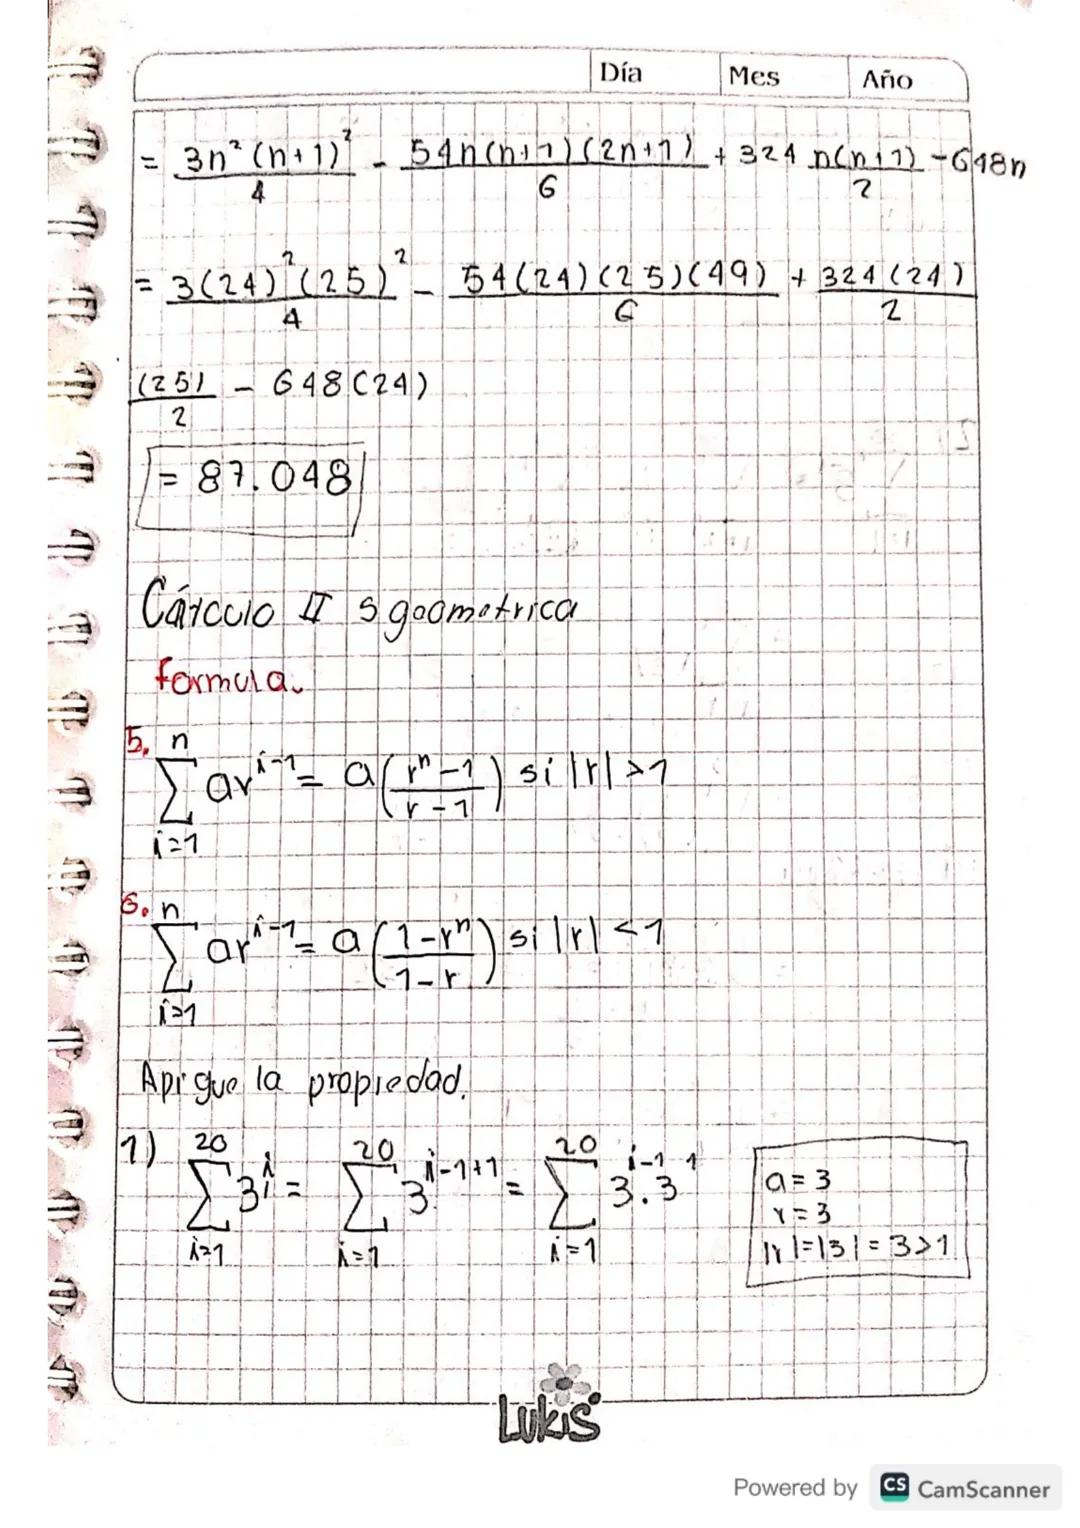 Día Mes Año
= 3n²(n+1)²/4 - 54n(n+1)(2n+1)/6 + 324 n(n+1)/2 - 648n
= 3(24)²(25)²/4 - 54(24)(25)(49)/6 + 324(24)/2
(25)/2 - 648(24)
= 87.048
Cálculo II s geometrica
formula.
5. ∑_{i=1}^{n} ar^{i-1} = a((r^n - 1)/(r - 1)) si |r| > 1
6. ∑_{i=1}^{n} ar^{i-1} = a((1 - r^n)/(1 - r)) si |r| < 1
Apigue la propiedad.
1) ∑_{i=1}^{20} 3^i = ∑_{i=1}^{20} 3^{i-1+1} = ∑_{i=1}^{20} 3^{i-1} . 3^1
a = 3
r = 3
|r| = |3| = 3 > 1
Lukis
Powered by CS CamScanner